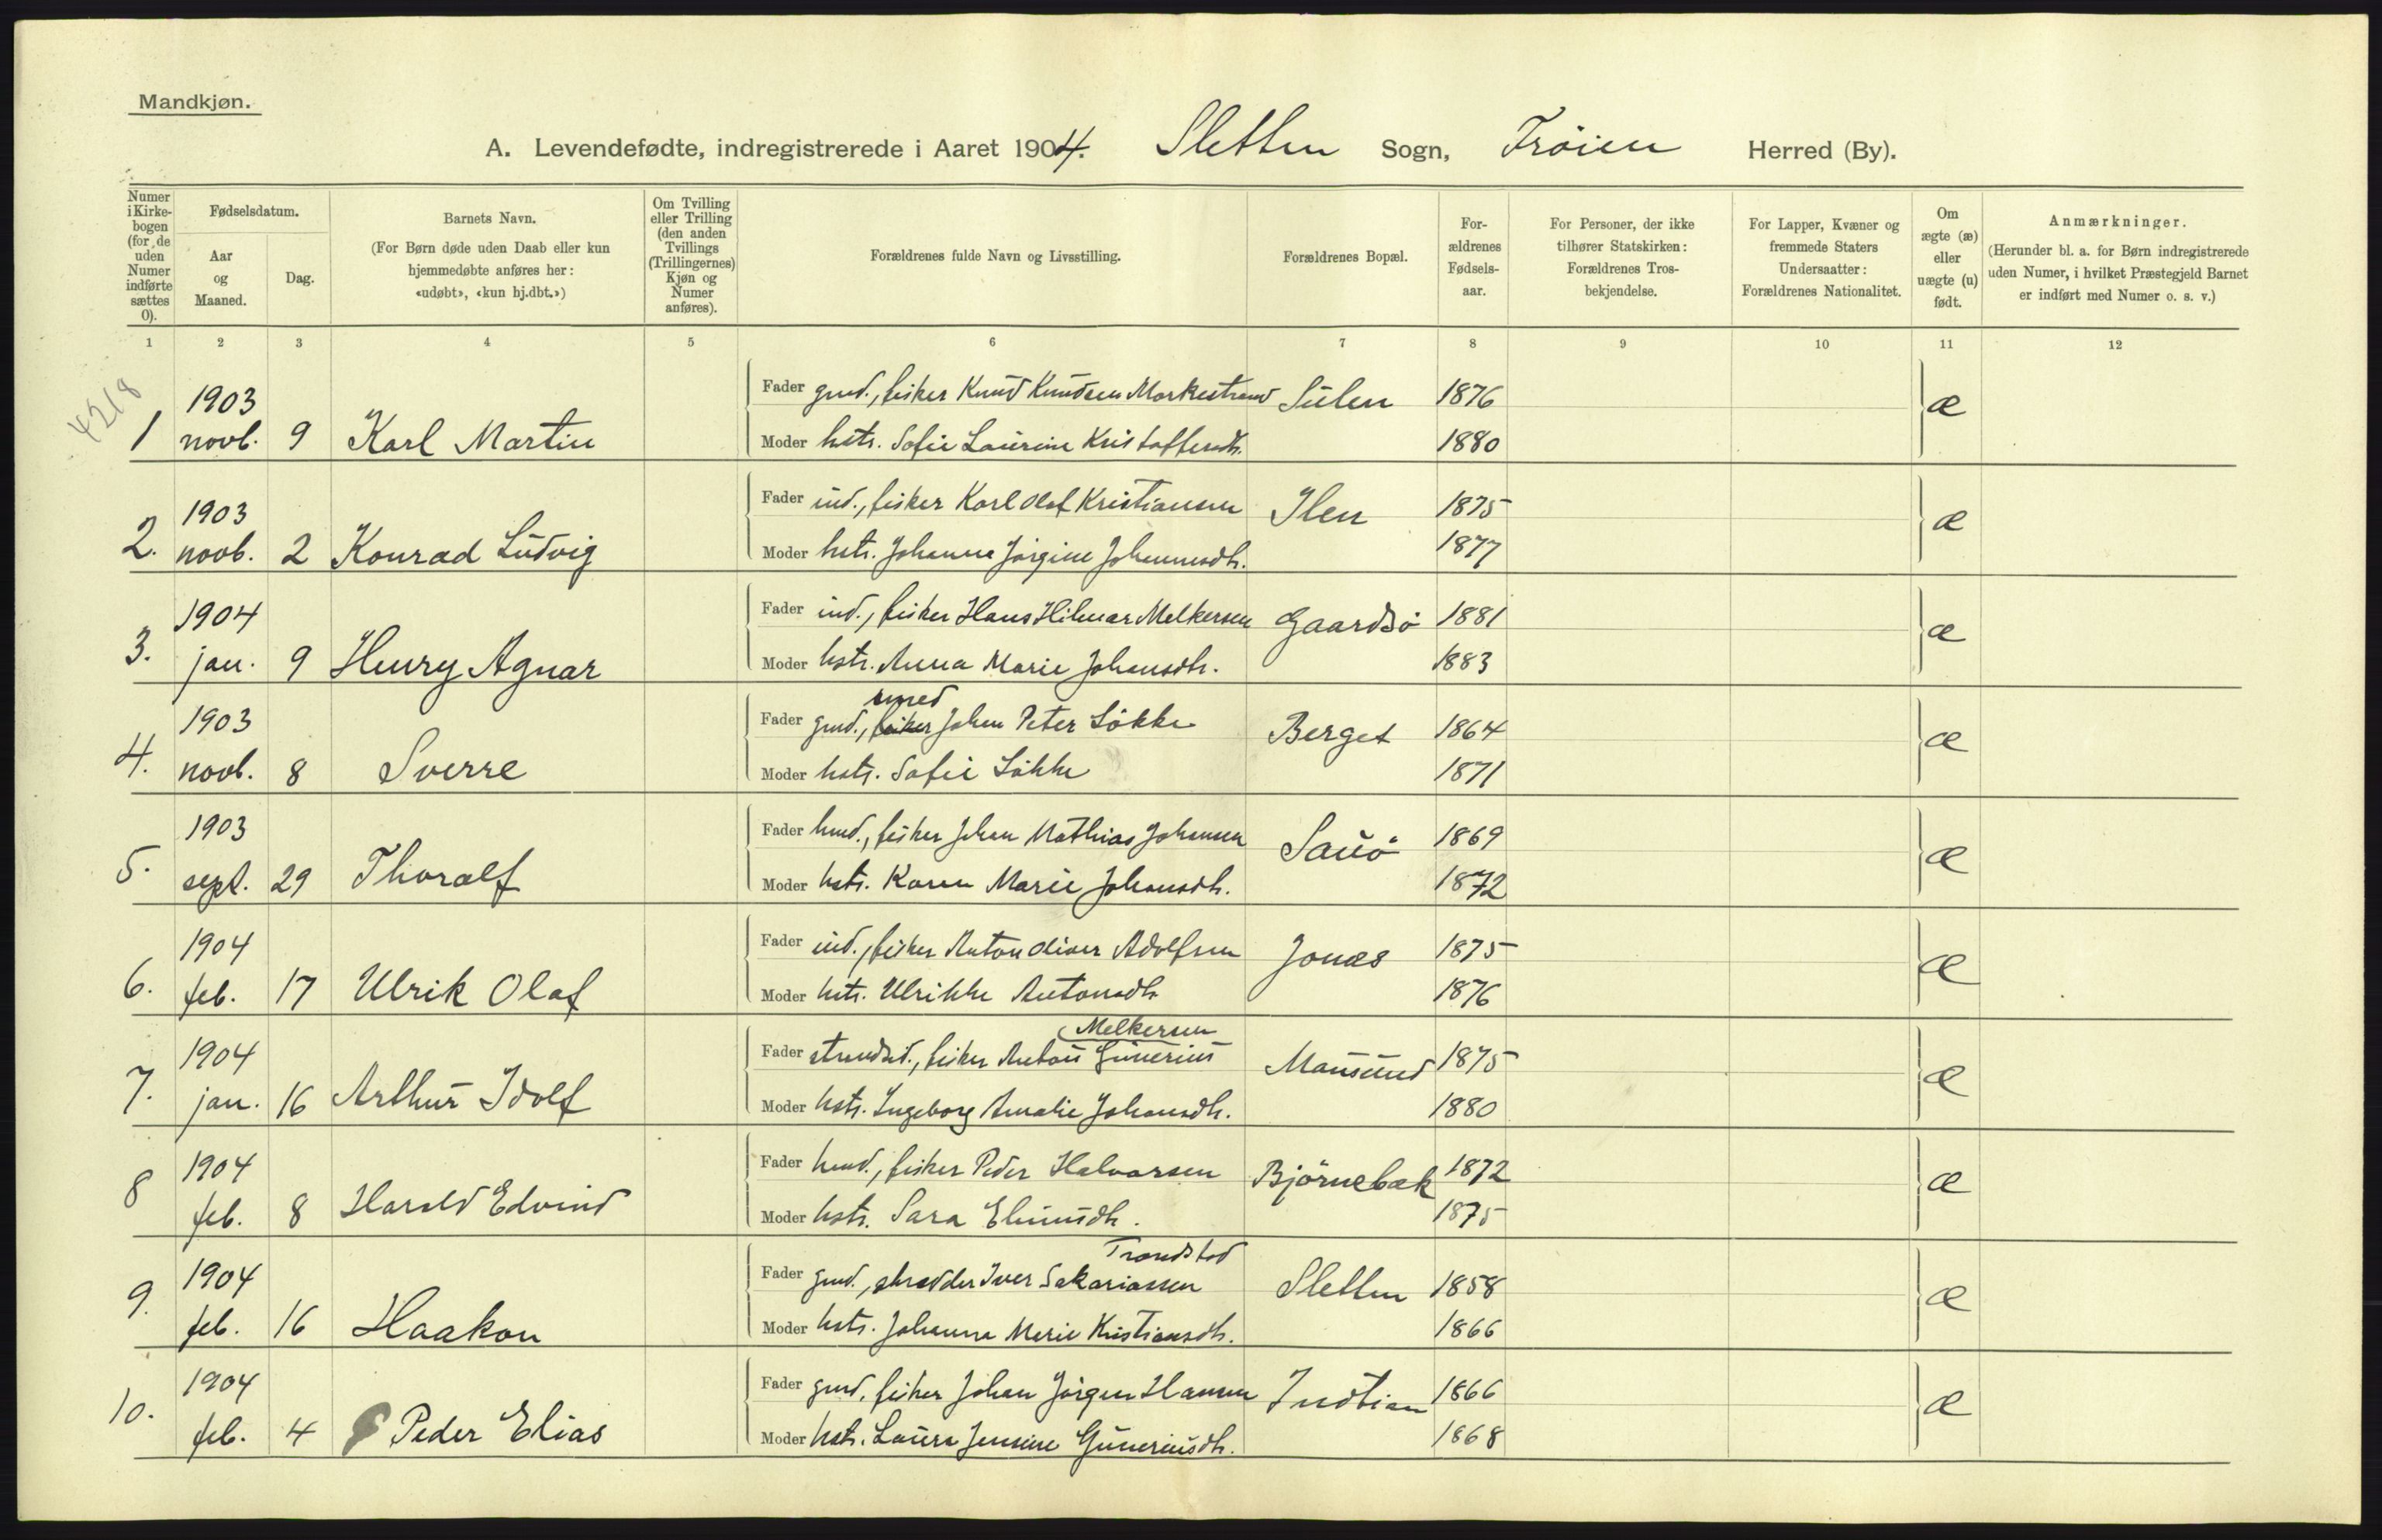 Mandkjøn.
A. Levendefødte, indregistrerede i Aaret 1904. Sletten Sogn, Frøien Herred (By).
Numer i Kirke-bogen (for de uden Numer indførte sættes 0).
Fødselsdatum.
Aar og Maaned.
Dag.
Barnets Navn.
(For Børn døde uden Daab eller kun hjemmedøbte anføres her: «udøbt», «kun hj.dbt.»)
Om Tvilling eller Trilling (den anden Tvillings (Trillingernes) Kjøn og Numer anføres).
Forældrenes fulde Navn og Livsstilling.
Forældrenes Bopæl.
For-ældrenes Fødsels-aar.
For Personer, der ikke tilhører Statskirken: Forældrenes Tros-bekjendelse.
For Lapper, Kvæner og fremmede Staters Undersaatter: Forældrenes Nationalitet.
Om ægte (æ) eller uægte (u) født.
Anmærkninger.
(Herunder bl. a. for Børn indregistrerede uden Numer, i hvilket Præstegjeld Barnet er indført med Numer o. s. v.)
1 2 3 4 5 6 7 8 9 10 11 12
4218
1903 Fader gmd., fisker Knud Knudsen Morkestrand Sulen 1876 æ
1 novb. 9 Karl Martin Moder hstr. Sofie Laurine Kristoffersdtr. 1880
1903 Fader ind., fisker Karl Olaf Kristiansen Ilen 1875 æ
2. novb. 2 Konrad Ludvig Moder hstr. Johanna Jørgine Johannesdtr. 1877
1904 Fader ind., fisker Hans Hilmar Melkersen Gaardsø 1881 æ
3. jan. 9 Henry Agnar Moder hstr. Anna Marie Johansdtr. 1883
smed
1903 Fader gmd., fisker Johan Peter Løkke Berget 1864 æ
4. novb. 8 Sverre Moder hstr. Sofie Løkke 1871
1903 Fader hmd., fisker Johan Mathias Johansen Sauø 1869 æ
5. sept. 29 Thoralf Moder hstr. Karen Marie Johansdtr. 1872
1904 Fader ind., fisker Anton Oliver Adolfsen Jonas 1875 æ
6. feb. 17 Ulrik Olaf Moder hstr. Ulrikke Antonsdtr 1876
Melkersen
1904 Fader strandsd., fisker Anton Gunerius Mausund 1875 æ
7. jan. 16 Arthur Idolf Moder hstr. Ingeborg Amalie Johansdtr. 1880
1904 Fader hmd., fisker Peder Halvorsen Bjørnebæk 1872 æ
8 feb. 8 Harald Edvind Moder hstr. Sara 1875
Trondstad
1904 Fader gmd., skrædder Iver Sakariassen Sletten 1858 æ
9. feb. 16 Haakon Moder hstr. Johanna Marie Kristiansdtr. 1866
1904 Fader gmd., fisker Johan Jørgen Hansen Indtian 1866 æ
10. feb. 4 Peder Elias Moder hstr. Laura Jensine Guneriusdtr. 1868